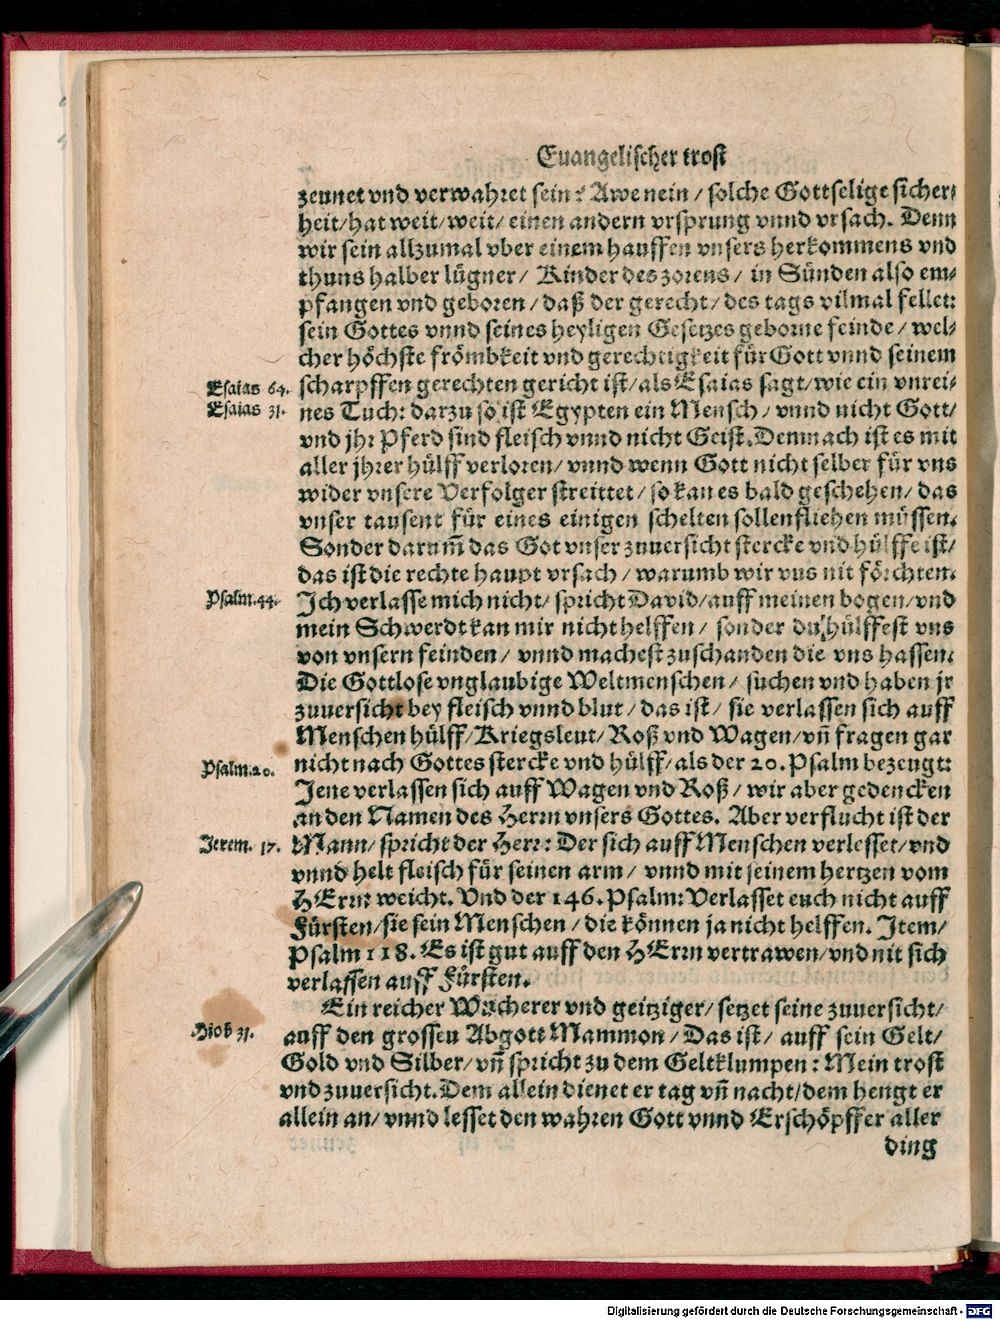 Euangelischer trost
zeunet vnd verwahret sein? Awe nein / solche Gottselige sicher⸗
heit/ hat weit/ weit/ einen andern vrsprung vnnd vrsach. Denn
wir sein allzumal vber einem hauffen vnsers herkommens vnd
thuns halber lügner/ Kinder des zorens/ in Sünden also em⸗
pfangen vnd geboren/ daß der gerecht/ des tags vilmal fellet:
sein Gottes vnnd seines heyligen Gesetzes geborne feinde/ wel⸗
cher höchste frömbkeit vnd gerechtigkeit für Gott vnnd seinem
Esaias 64. scharpffen gerechten gericht ist/ als Esaias sagt/ wie ein vnrei⸗
Esaias 31. nes Tuch: darzu so ist Egypten ein Mensch/ vnnd nicht Gott/
vnd jhr Pferd sind fleisch vnnd nicht Geist. Demnach ist es mit
aller jhrer hülff verloren/ vnnd wenn Gott nicht selber für vns
wider vnsere Verfolger streittet/ so kan es bald geschehen/ das
vnser tausent für eines einigen schelten sollen fliehen müssen.
Sonder darum̃ das Got vnser zuuersicht stercke vnd hülffe ist/
das ist die rechte haupt vrsach/ warumb wir vns nit förchten.
Psalm. 44. Ich verlasse mich nicht/ spricht Dauid/ auff meinen bogen/ vnd
mein Schwerdt kan mir nicht helffen/ sonder du hülffest vns
von vnsern feinden/ vnnd machest zuschanden die vns hassen.
Die Gottlose vnglaubige Weltmenschen/ suchen vnd haben jr
zuuersicht bey fleisch vnnd blut/ das ist/ sie verlassen sich auff
Menschen hülff/ Kriegsleut/ Roß vnd Wagen/ vn̄ fragen gar
Psalm. 20. nicht nach Gottes stercke vnd hülff/ als der 20. Psalm bezeugt:
Jene verlassen sich auff Wagen vnd Roß/ wir aber gedencken
an den Namen des Herrn vnsers Gottes. Aber verflucht ist der
Jerem. 17. Mann/ spricht der Herr: Der sich auff Menschen verlesset/ vnd
vnnd helt fleisch für seinen arm/ vnnd mit seinem hertzen vom
HErrn weicht. Vnd der 146. Psalm: Verlasset euch nicht auff
Fürsten/ sie sein Menschen/ die können ja nicht helffen. Item/
Psalm 118. Es ist gut auff den HErrn vertrawen/ vnd nit sich
verlassen auff Fürsten.
Ein reicher Wücherer vnd geitziger/ setzet seine zuuersicht/
Hiob 31. auff den grossen Abgott Mammon/ Das ist/ auff sein Gelt/
Gold vnd Silber/ vn̄ spricht zu dem Geltklumpen: Mein trost
vnd zuuersicht. Dem allein dienet er tag vn̄ nacht/ dem hengt er
allein an/ vnnd lesset den wahren Gott vnnd Erschöpffer aller
ding
Digitalisierung gefördert durch die Deutsche Forschungsgemeinschaft - DFG